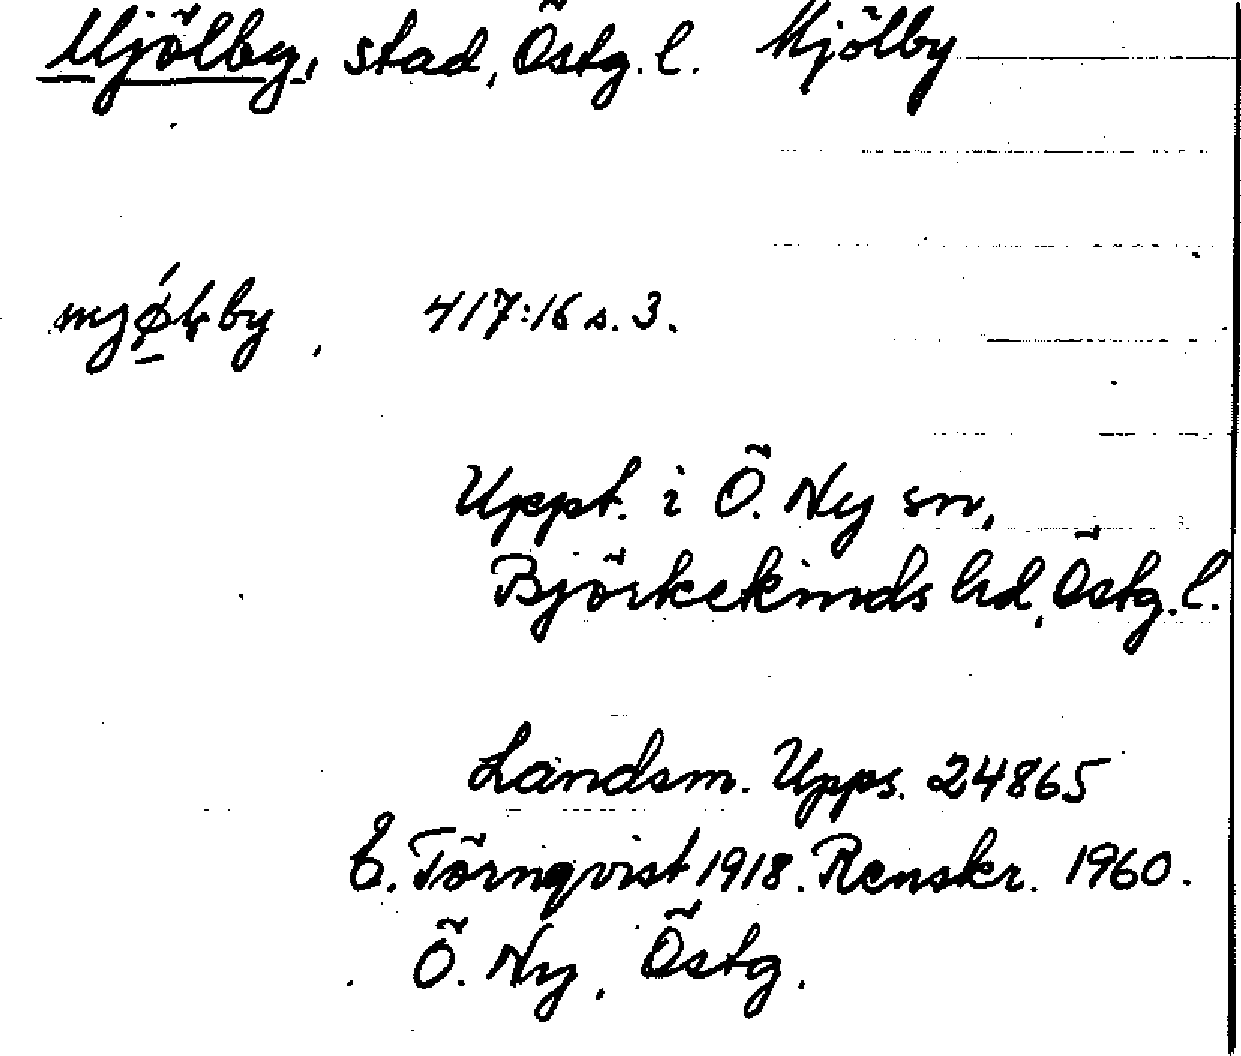 Mjölby, stad, Östg. l. Mjölby
417:16 s. 3.
Uppt. i Ö. Ny sn,
Björkekinds hd, Östg. l.
Landsm. Upps. 24865
E. Törnqvist 1918. Renskr. 1960.
Ö. Ny, Östg.